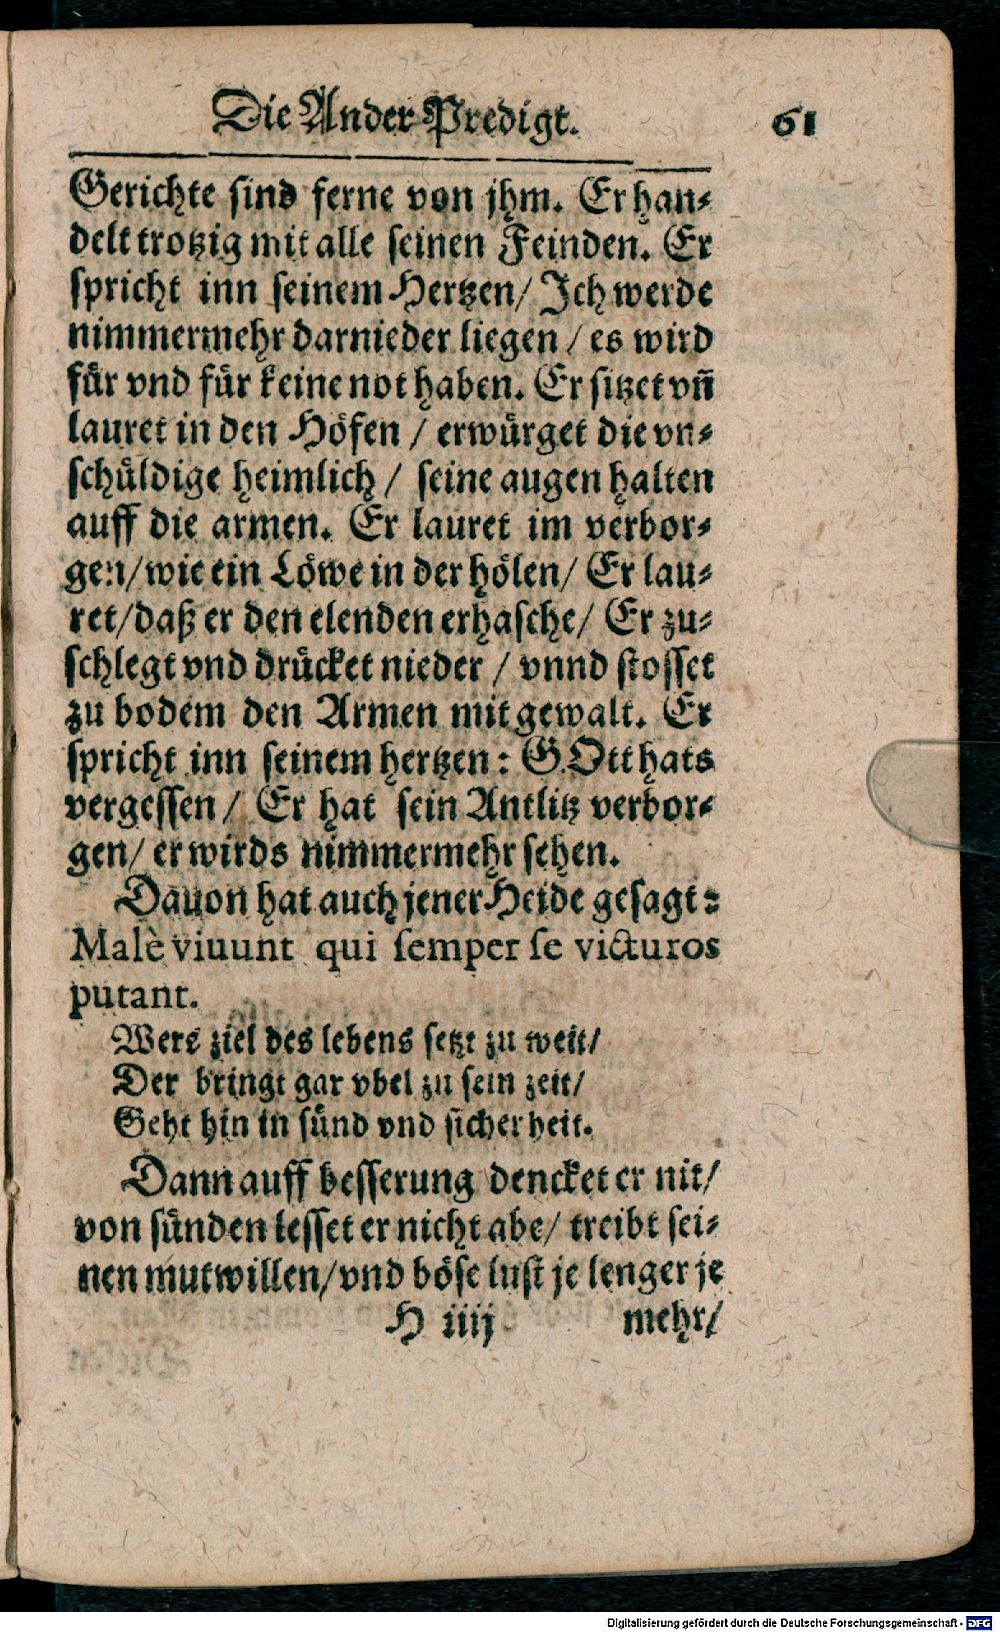 Die Ander Predigt. 61
Gerichte sind ferne von jhm. Er han⸗
delt trotzig mit alle seinen Feinden. Er
spricht inn seinem Hertzen/ Jch werde
nimmermehr darnieder liegen / es wird
fuͤr vnd fuͤr keine not haben. Er sitzet vñ
lauret in den Hoͤfen / erwuͤrget die vn⸗
schuͤldige heimlich / seine augen halten
auff die armen. Er lauret im verbor⸗
gen/ wie ein Loͤwe in der hoͤlen/ Er lau⸗
ret/ daß er den elenden erhasche/ Er zu⸗
schlegt vnd druͤcket nieder / vnnd stosset
zu bodem den Armen mit gewalt. Er
spricht inn seinem hertzen: GOtt hats
vergessen / Er hat sein Antlitz verbor⸗
gen/ er wirds nimmermehr sehen.
Dauon hat auch jener Heide gesagt:
Malè viuunt qui semper se victuros
putant.
Wers ziel des lebens setzt zu weit/
Der bringt gar vbel zu sein zeit/
Geht hin in suͤnd vnd sicherheit.
Dann auff besserung dencket er nit/
von suͤnden lesset er nicht abe/ treibt sei⸗
nen mutwillen/ vnd boͤse lust je lenger je
H iiij mehr/
Digitalisierung gefördert durch die Deutsche Forschungsgemeinschaft - DFG